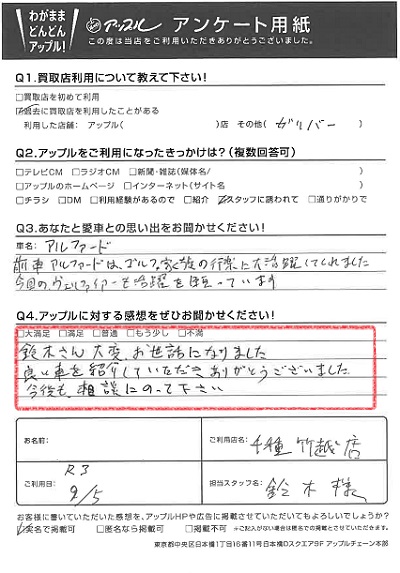 わがまま
どんどん
アップル!
アップル アンケート用紙
この度は当店をご利用いただきありがとうございました。
Q1.買取店利用について教えて下さい!
□買取店を初めて利用
☑過去に買取店を利用したことがある
利用した店舗: アップル( )店 その他( ガリバー )
Q2.アップルをご利用になったきっかけは?(複数回答可)
□テレビCM □ラジオCM □新聞・雑誌(媒体名/ )
□アップルのホームページ □インターネット(サイト名 )
□チラシ □DM □利用経験があるので □紹介 ☑スタッフに誘われて □通りがかりで
Q3.あなたと愛車との思い出をお聞かせください!
車名: アルファード
前車アルファードは、ゴルフ、家族の行楽に大活躍してくれました
今回のヴェルファイアーも活躍を 
っています
Q4.アップルに対する感想をぜひお聞かせください!
□大満足 □満足 □普通 □もう少し □不満
鈴木さん大変お世話になりました
良い車を紹介していただきありがとうございました
今後も相談にのって下さい
お名前:
ご利用店名: 千種竹越店
ご利用日: R3 9/5
担当スタッフ名: 鈴木様
お客様に書いていただいた感想を、アップルHPや広告に掲載させていただいてもよろしいでしょうか?
☑実名で掲載可 □匿名なら掲載可 □掲載不可 ※ご記入がない場合は匿名での掲載とさせていただきます。
東京都中央区日本橋1丁目16番11号日本橋Dスクエア9F アップルチェーン本部